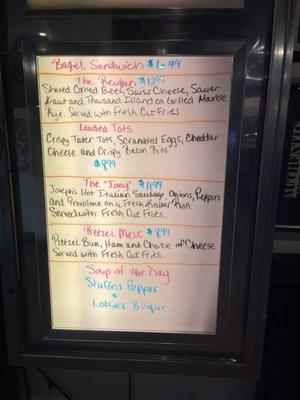 Bagel Sandwich $6.49
The Reuben $12.99
Shaved Corned Beef, Swiss Cheese, Sauer
Kraut and Thousand Island on Grilled Marble
Rye. Served with Fresh Cut Fries
Loaded Tots
Crispy Tater Tots, Scrambled Eggs, Cheddar
Cheese and Crispy Bacon Bits.
$8.99
The "Joey" $11.99
Joseph's Hot Italian Sausage, Onions, Peppers
and Provolone on a Fresh Kaiser Roll
Served with Fresh Cut Fries.
Pretzel Melt $8.99
Pretzel Bun, Ham and Choice of Cheese.
Served with Fresh Cut Fries.
Soup of the Day
Stuffed Pepper
+
Lobster Bisque